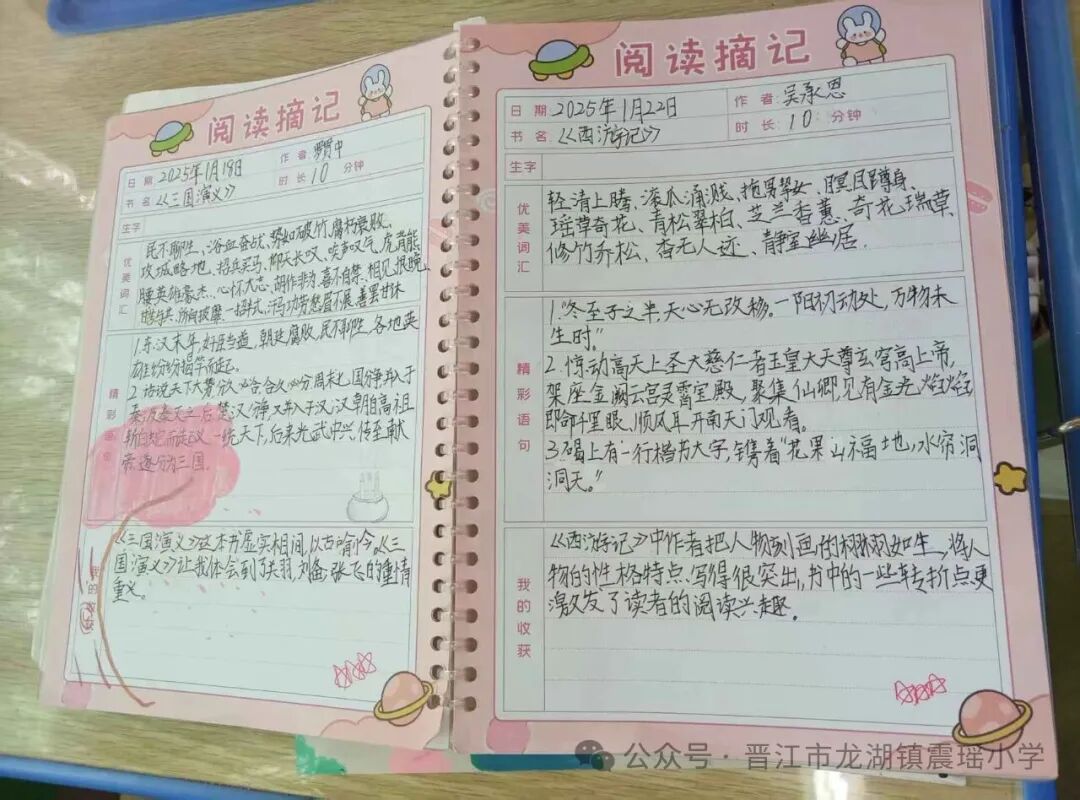 阅读摘记
日 期 2025年1月18日
作 者
时 长 10 分钟
书 名 《三国演义》
生字
优美词汇
民不聊生、浴血奋战、势如破竹、腐朽衰败、
攻城略地、招兵买马、仰天长叹、唉声叹气、虎背熊
腰英雄豪杰、心怀大志、胡作非为、喜不自禁、相见恨晚、
所向披靡 一招一式、汗马功劳愁眉不展、善罢甘休
精彩语句
1.东汉末年,奸臣当道,朝廷腐败,民不聊生,各地英
雄纷纷揭竿而起。
2.话说天下大势,分久必合,合久必分:周末七国分争,并入于
秦;及秦灭之后,楚、汉分争,又并入于汉;汉朝自高祖
斩白蛇而起义,一统天下,后来光武中兴,传至献
帝,遂分为三国。
我的收获
《三国演义》这本书虚实相间,以古喻今。《三
国演义》让我体会到了关羽、刘备、张飞的重情
重义。
阅读摘记
日 期 2025年1月22日
作 者 吴承恩
书 名 《西游记》
时 长 10 分钟
生字
优美词汇
轻清上腾、滚瓜涌溅、拖男挈女、瞑目蹲身、
瑶草奇花、青松翠柏、芝兰香蕙、奇花瑞草、
修竹乔松、杳无人迹、静室幽居
精彩语句
1."冬至子之半,天心无改移。一阳初动处,万物未
生时。"
2.惊动高天上圣大慈仁者玉皇大天尊玄穹高上帝,
驾座金阙云宫灵霄宝殿,聚集仙卿,见有金光焰焰
即命千里眼、顺风耳开南天门观看。
3.碣上有一行楷书大字,镌着"花果山福地,水帘洞
洞天。"
我的收获
《西游记》中作者把人物刻画的栩栩如生,将人
物的性格特点写得很突出,书中的一些转折点更
激发了读者的阅读兴趣。
公众号·晋江市龙湖镇震瑶小学